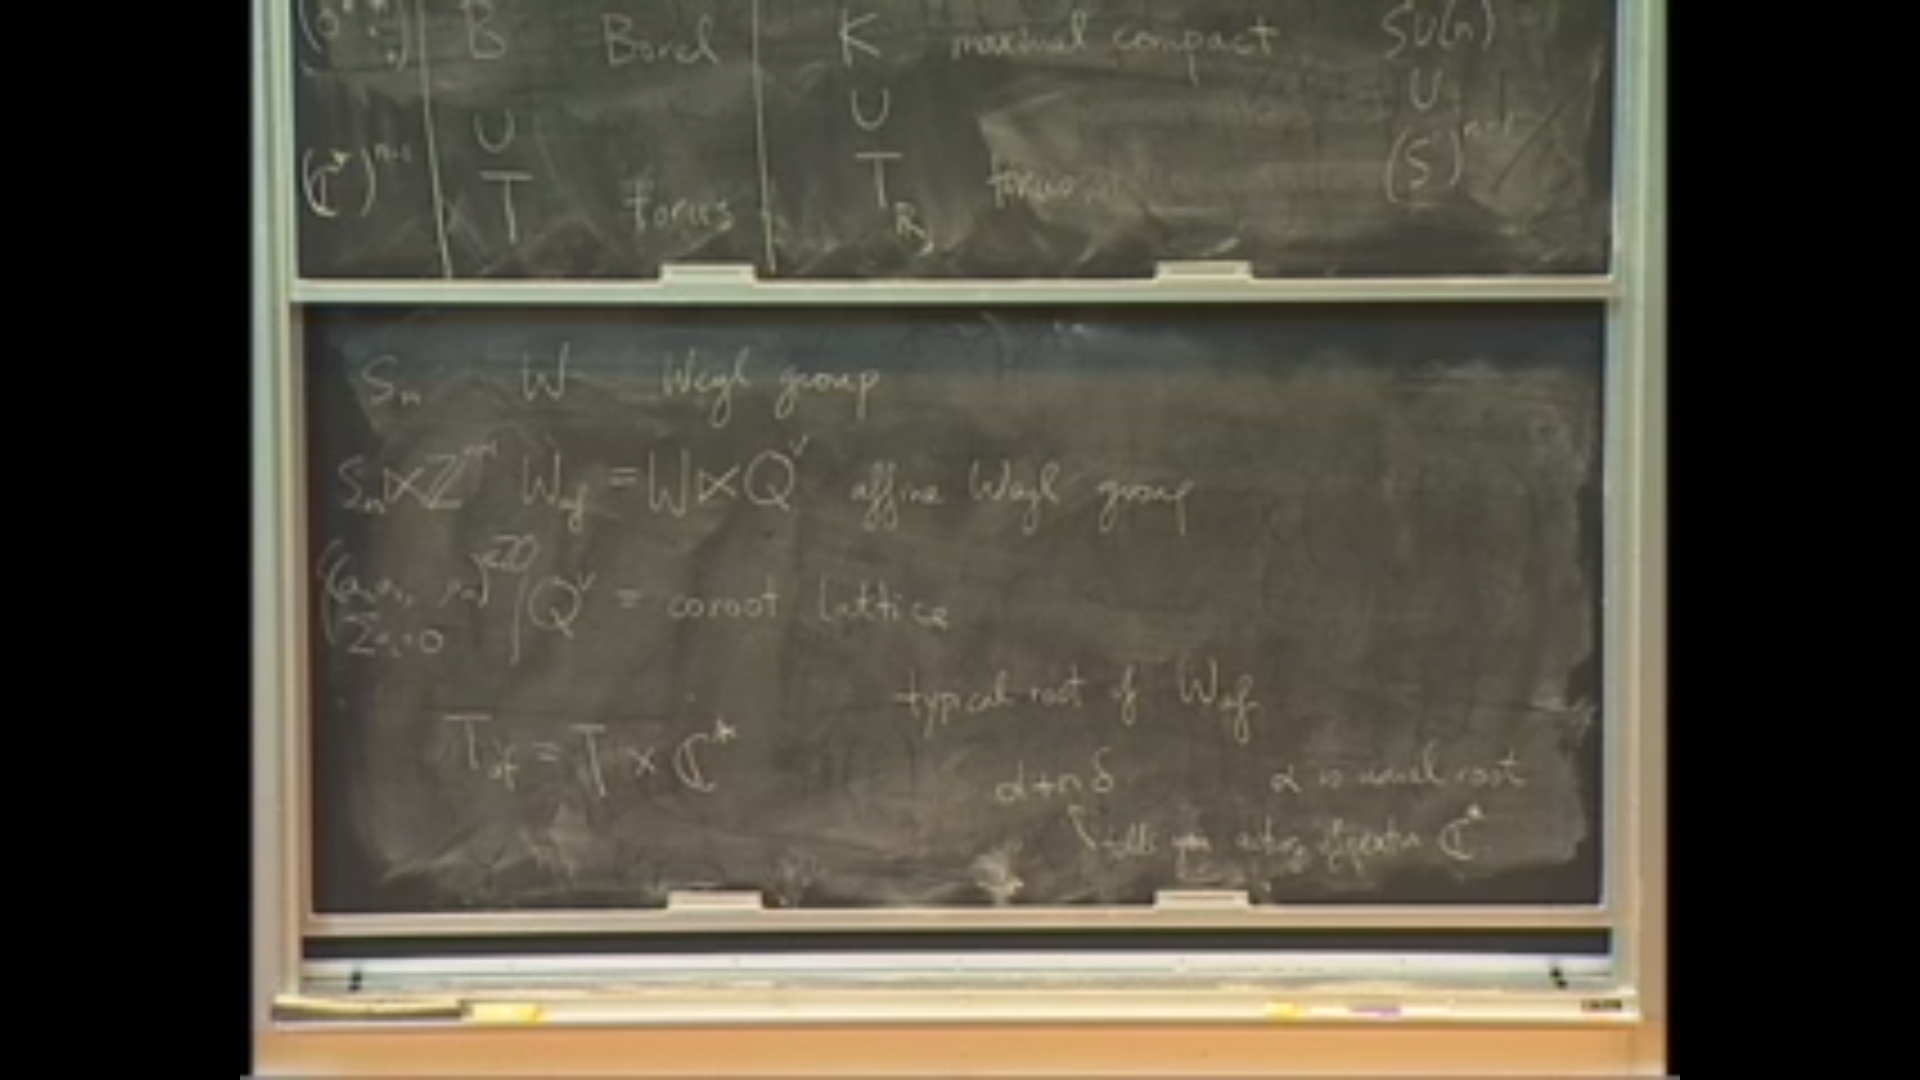 B Borel K maximal compact SU(n)
∪ ∪ ∪
(ℂ*)ⁿ⁻¹ T torus T_ℝ torus (S¹)ⁿ⁻¹
Sₙ W Weyl group
Sₙ⋉ℤⁿ⁻¹ W_af = W⋉Q^∨ affine Weyl group
Q^∨ = coroot lattice
typical root of W_af
T_af = T × ℂ*
α+nδ α is usual root
tells you action of extra ℂ*